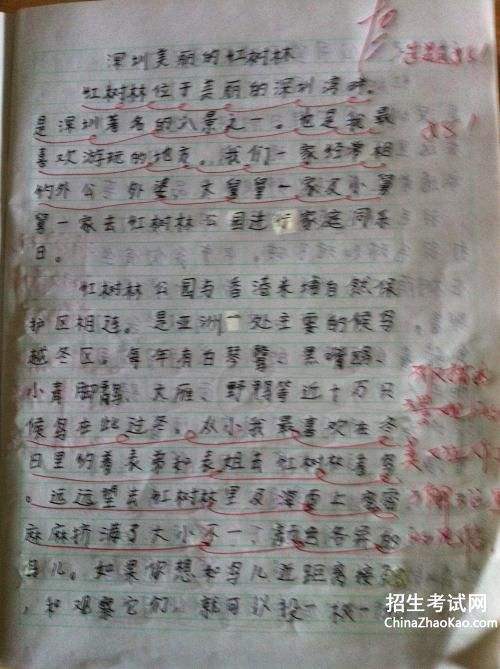 深圳美丽的红树林
红树林位于美丽的深圳湾畔。
是深圳著名的八景之一。也是我最
喜欢游玩的地方。我们一家经常相
约外公、外婆、大舅舅一家及小舅
舅一家去红树林公园进行家庭同乐
日。
红树林公园与香港米埔自然保
护区相连。是亚洲一处主要的候鸟
越冬区。每年有白琴鹭、黑嘴鸥、
小青脚鹬、大雁、野鸭等近十万只
候鸟在此过冬。从小我最喜欢在冬
日里约着表弟和表姐去红树林看鸟
。远远望去红树林里及深面上密密
麻麻挤满了大小不一、颜色各异的
鸟儿。如果你想和鸟儿近距离接
,和观察它们,就可以投一
招生考试网
ChinaZhaoKao.com